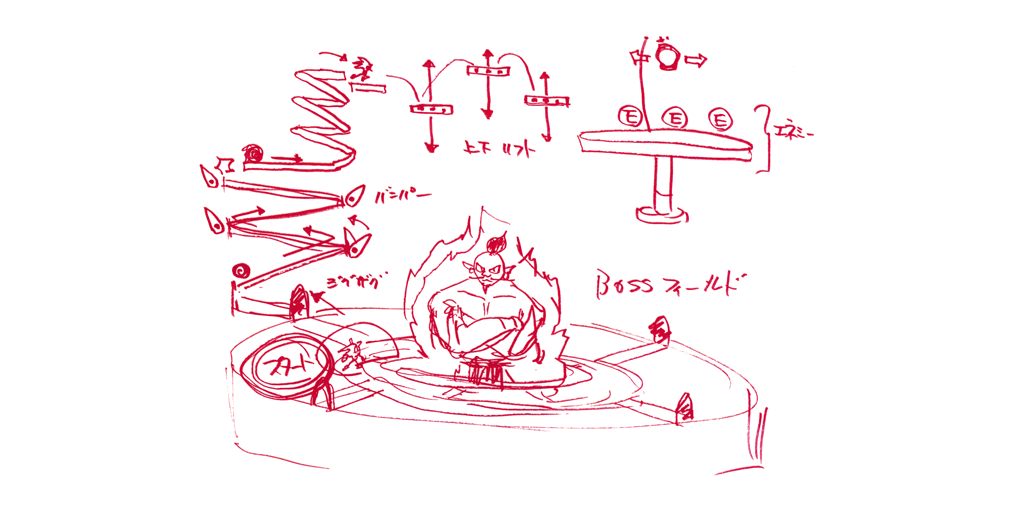 上下リフト
E E E
エネミー
バンパー
ジグザグ
BOSSフィールド
スタート